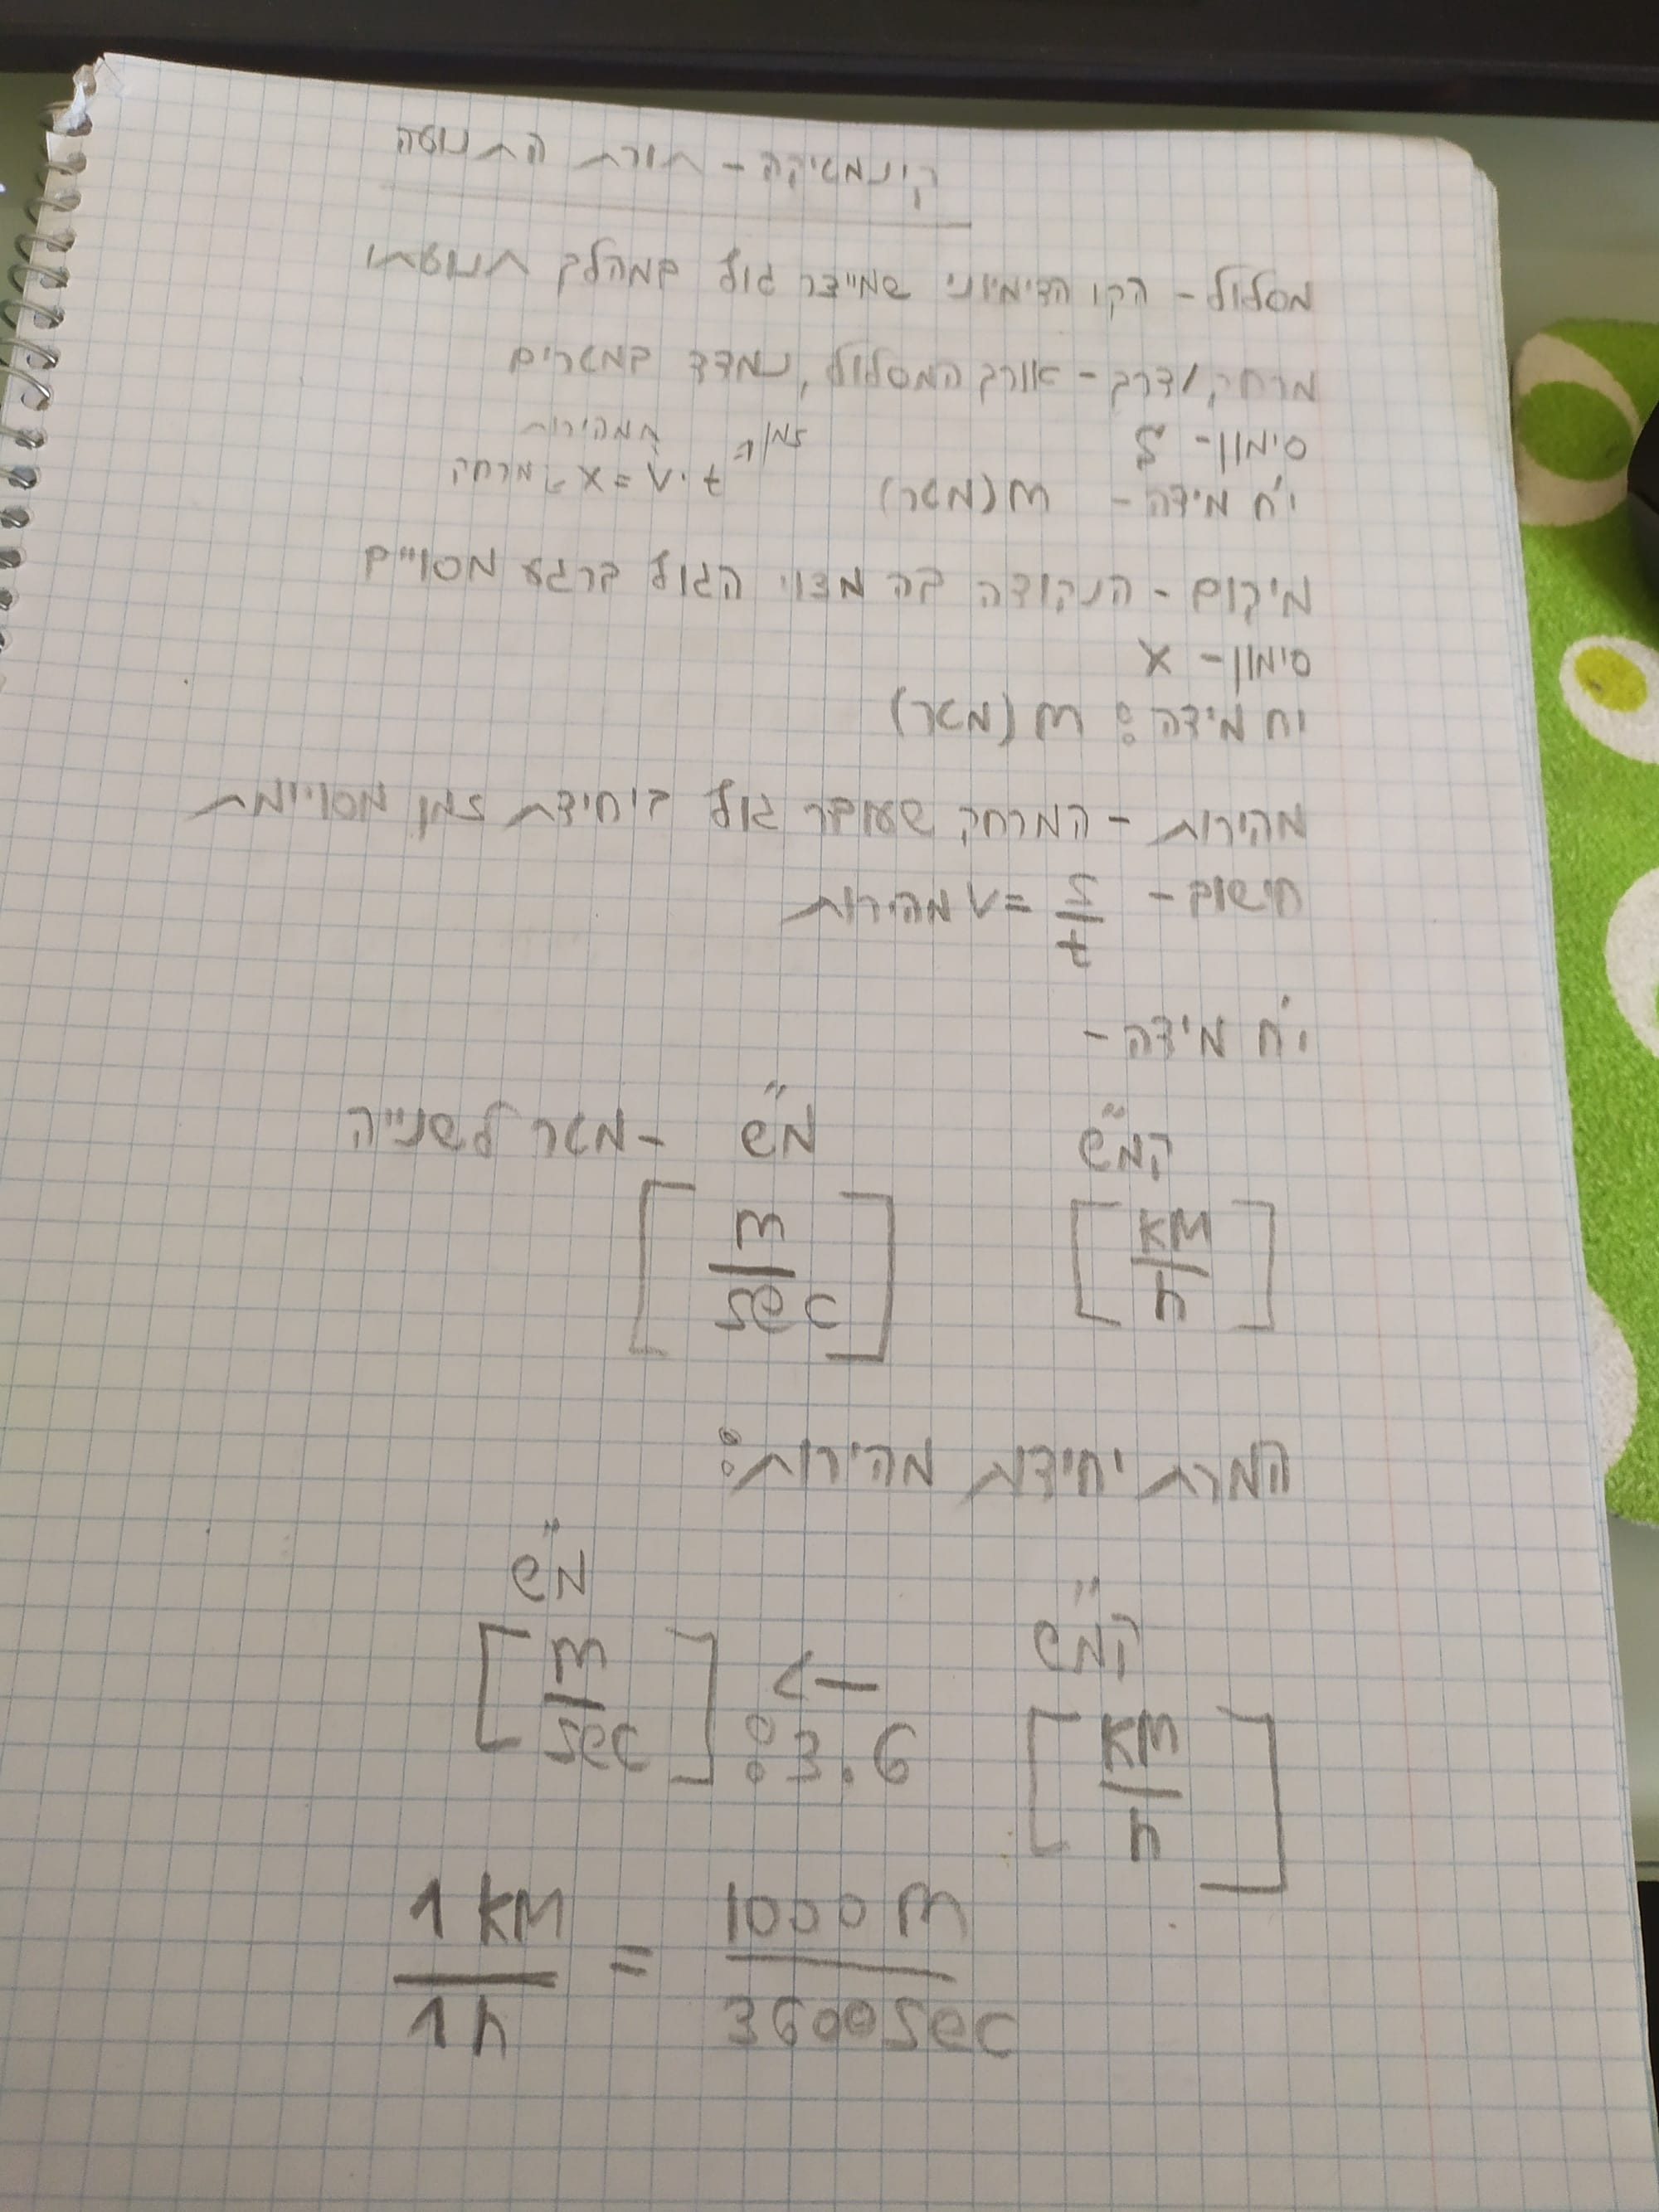 קינמאטיקה - תורת התנועה
מסלול - הקו הדימיוני שמייצר גוף במהלך תנועתו
מרחק/דרך - אורך המסלול, נמדד במטרים
סימון - S
זמן
מהירות
יח' מידה - m (מטר)
x = v·t
מרחק
מיקום - הנקודה בה מצוי הגוף ברגע מסויים
סימון - x
יח מידה: m (מטר)
מהירות - המרחק שעובר גוף ביחידת זמן מסויימת
חישוב - מהירות v = S/t
יח' מידה -
קמ"ש
מ"ש - מטר לשנייה
[KM/h]
[m/sec]
המרת יחידת מהירות:
קמ"ש
מ"ש
[KM/h]
<—
:3.6
[m/sec]
1 KM/1h = 1000 m/3600sec